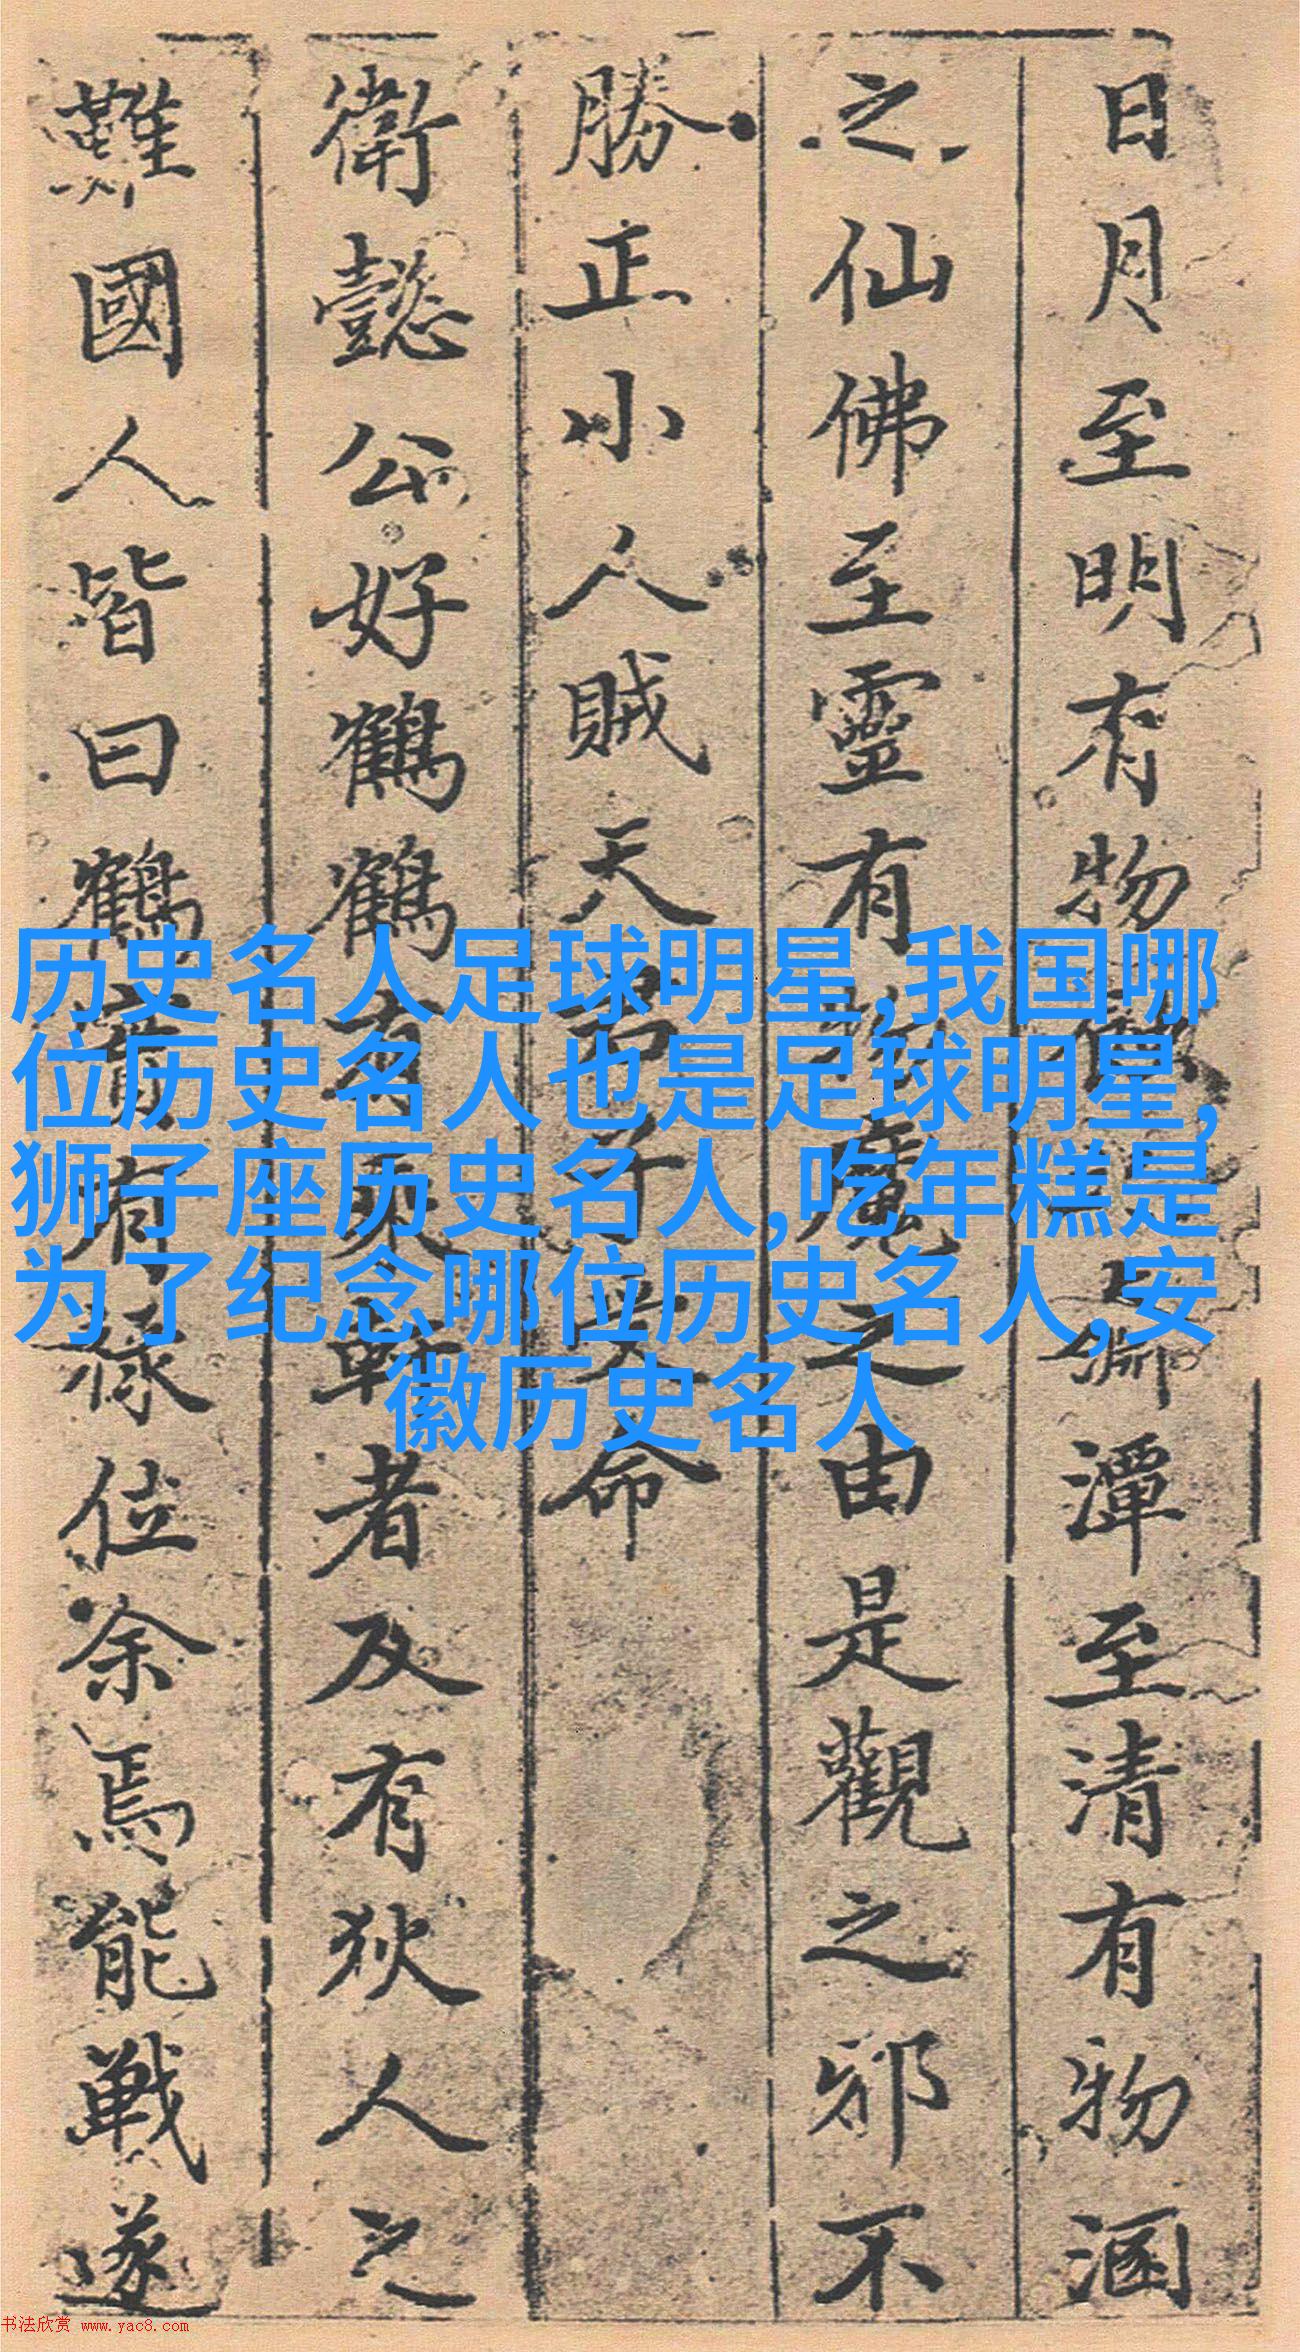 日月至明有物潭至清有物涵
之仙佛至靈有魔之由是觀之邪不
勝正小人賊天君子命
衛懿公好鶴鶴有乘軒者及有狄人之
難國人皆曰鶴實有祿位余焉能戰遂
历史名人足球明星,我国哪
位历史名人也是足球明星,
狮子座历史名人,吃年糕是
为了纪念哪位历史名人,安
徽历史名人
书法欣赏 www.yac8.com